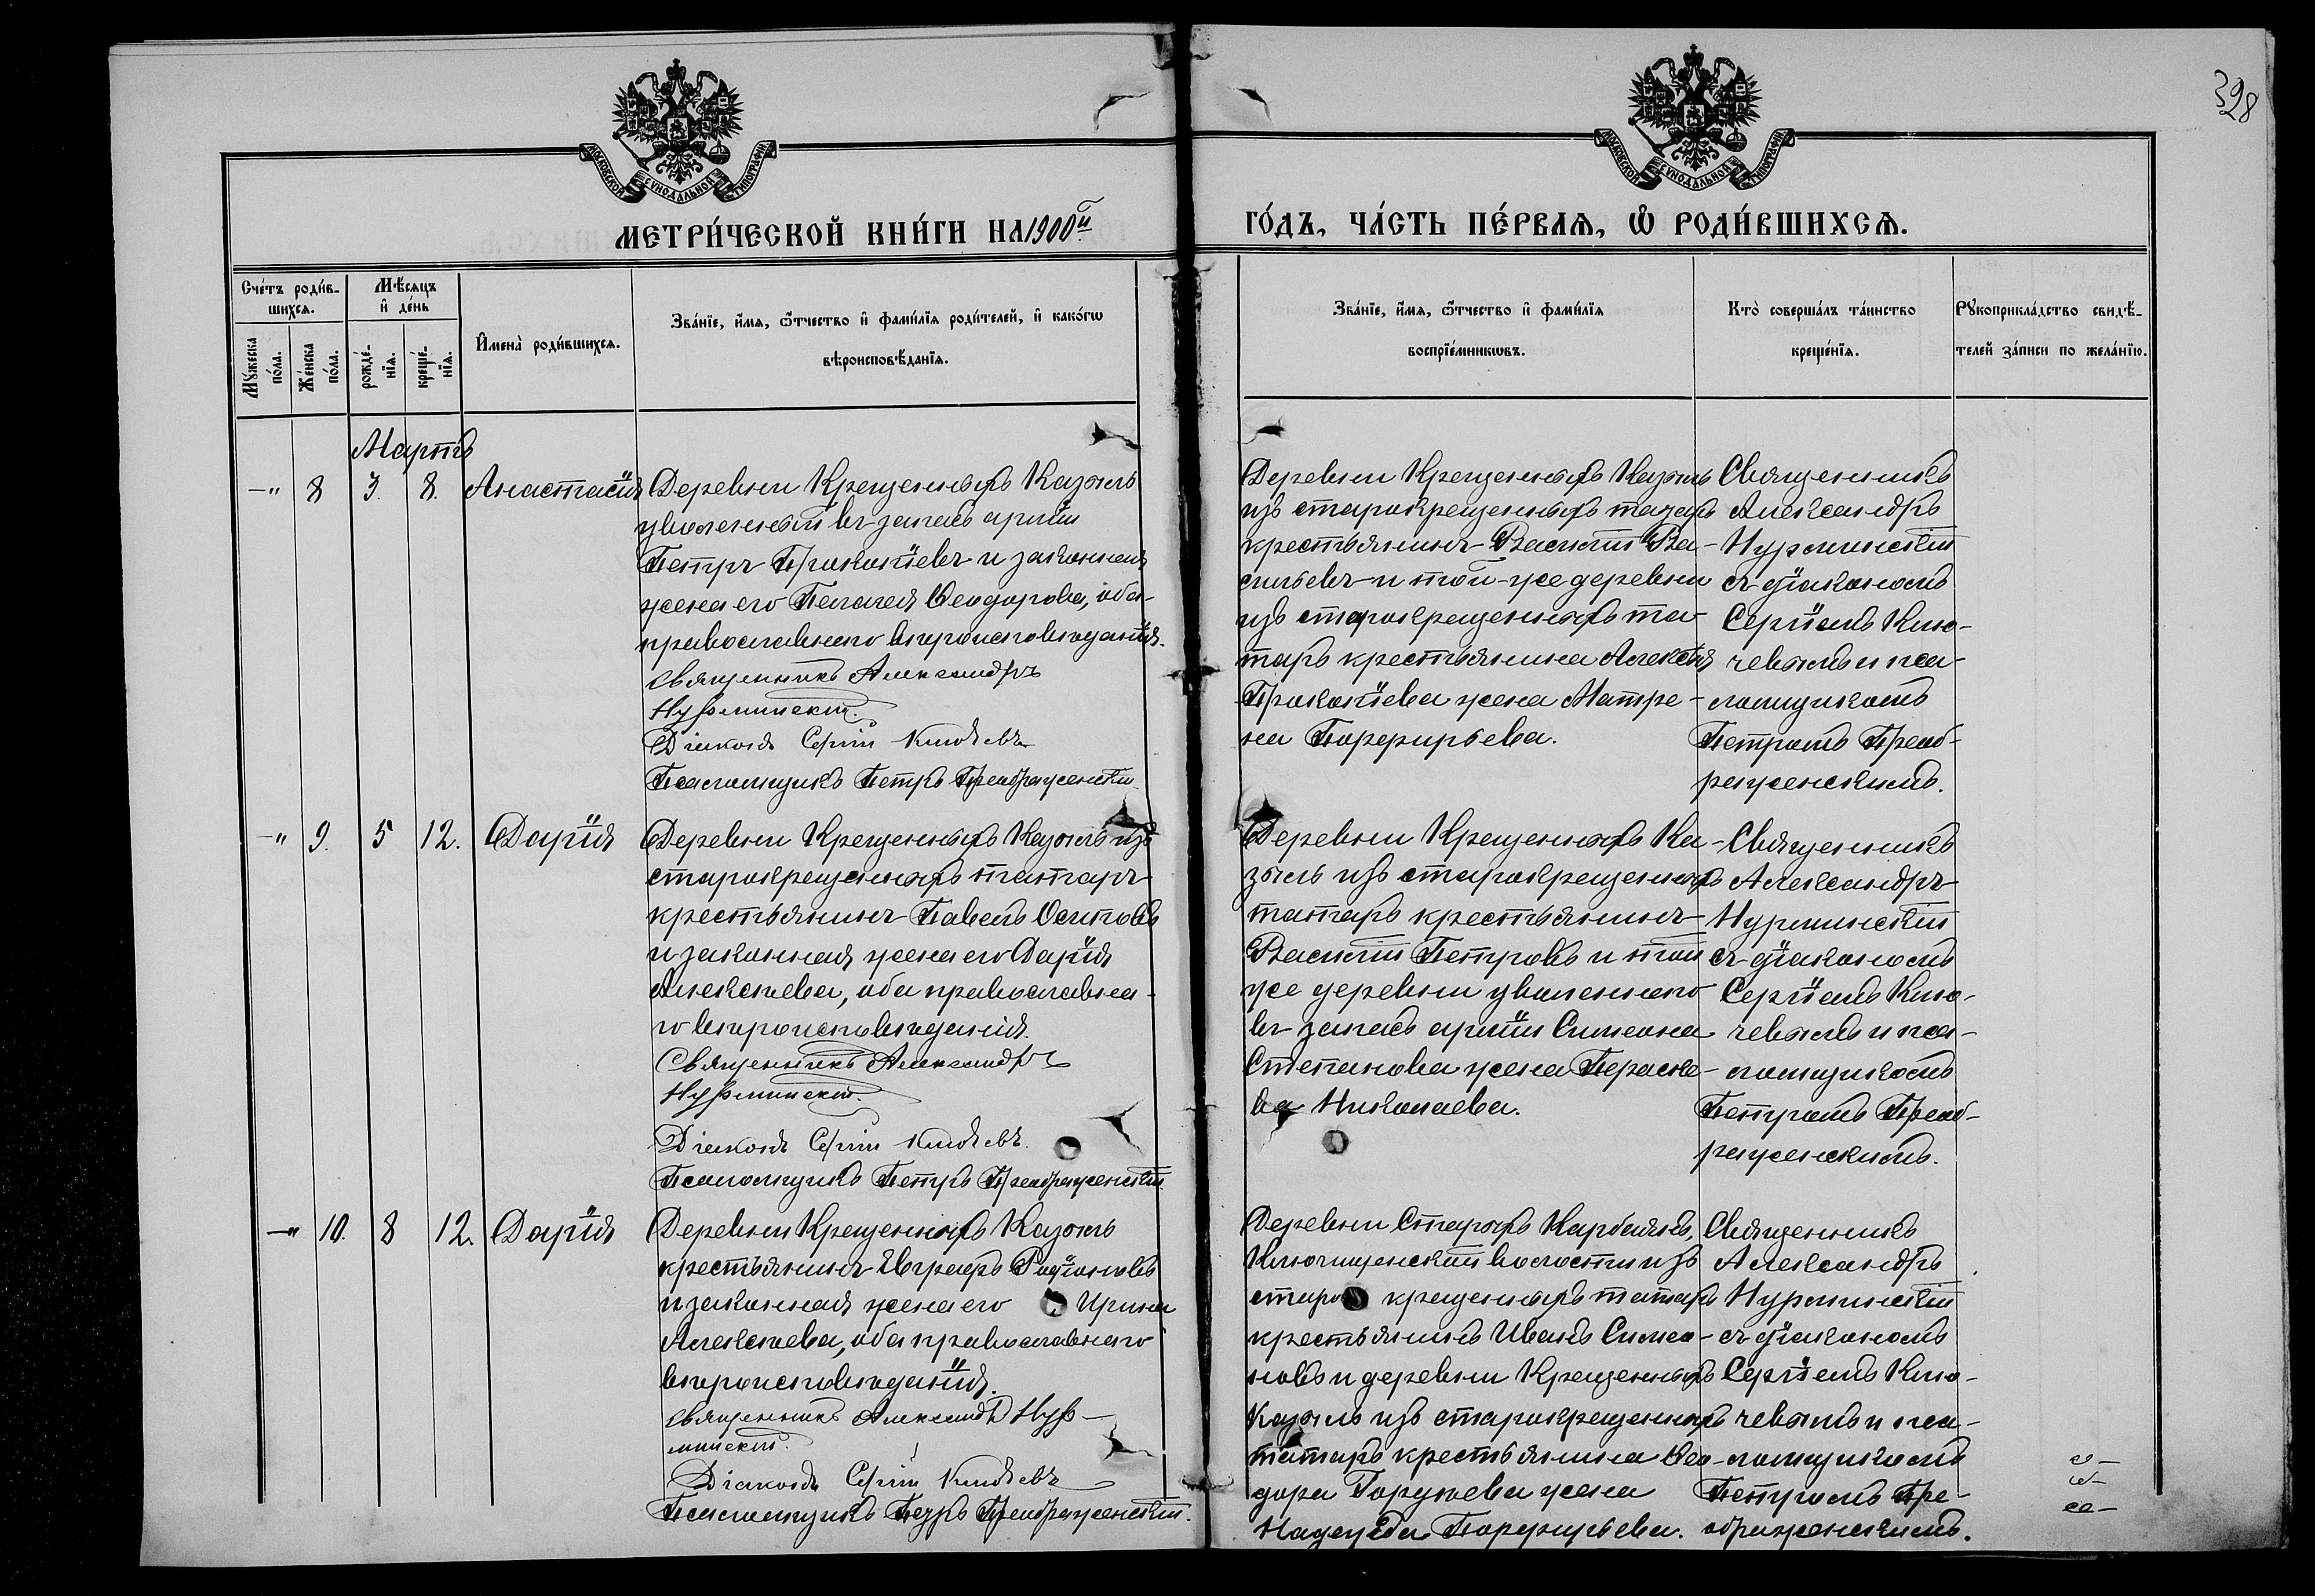 398
МОСКОВСКОЙ СѴНОДАЛЬНОЙ ТИПОГРАФІИ
МОСКОВСКОЙ СѴНОДАЛЬНОЙ ТИПОГРАФІИ
МЕТРИ́ЧЕСКОЙ КНИ́ГИ НА 1900й
ГО́ДЪ, ЧА́СТЬ ПЕ́РВАѦ, Ѡ҆ РОДИ́ВШИХСѦ.
Сче́тъ роди́в-
шихсѧ.
Мꙋ́жеска
по́ла.
Же́нска
по́ла.
Мѣ́сѧцъ
и҆ де́нь
рожде́-
нїѧ.
креще́-
нїѧ.
И҆мена̀ роди́вшихсѧ.
Зва́нїе, и҆́мѧ, ѻ҆́тчество и҆ фами́лїѧ роди́телей, и҆ како́гѡ
вѣроисповѣ́данїѧ.
Зва́нїе, и҆́мѧ, ѻ҆́тчество и҆ фами́лїѧ
воспрїе́мникѡвъ.
Кто̀ соверша́лъ та́инство
креще́нїѧ.
Рꙋкоприкла́дство свидѣ́-
телей за́писи по жела́нїю.
Мартъ
—„ 8 3. 8. Анастасія
Деревни Крещенныхъ Казыль
уволенный въ запасъ арміи
Петръ Прокопіевъ и законная
жена его Пелагея Ѳеодорова, оба
православнаго вѣроисповѣданія.
Священникъ Александръ
Нурминскій.
Діаконъ Сергій Ключевъ
Псаломщикъ Петръ Преображенскій
Деревни Крещенныхъ Казыль
изъ старокрещенныхъ татаръ
крестьянинъ Василій Ва-
сильевъ и той-же деревни
изъ старокрещенныхъ та-
таръ крестьянина Алексѣя
Прокопіева жена Матре-
на Порфирьева.
Священникъ
Александръ
Нурминскій
съ діакономъ
Сергіемъ Клю-
чевымъ и пса-
ломщикомъ
Петромъ Преоб-
раженскимъ.
—„ 9. 5 12. Дарія
Деревни Крещенныхъ Казыль изъ
старокрещенныхъ татаръ
крестьянинъ Павелъ Осиповъ
и законная жена его Дарія
Алексѣева, оба православна-
го вѣроисповѣданія.
Священникъ Александръ
Нурминскій.
Діаконъ Сергій Ключевъ.
Псаломщикъ Петръ Преображенскій
Деревни Крещенныхъ Ка-
зыль изъ старокрещенныхъ
татаръ крестьянинъ
Василій Петровъ и той
же деревни уволеннаго
въ запасъ арміи Симеона
Степанова жена Параске-
ва Николаева.
Священникъ
Александръ
Нурминскій
съ діакономъ
Сергіемъ Клю-
чевымъ и пса-
ломщикомъ
Петромъ Преоб-
раженскимъ.
—„ 10. 8 12. Дарія
Деревни Крещенныхъ Казыль
крестьянинъ Евграфъ Родіоновъ
и законная жена его Ирина
Алексѣева, оба православнаго
вѣроисповѣданія.
Священникъ Александръ Нур-
минскій.
Діаконъ Сергій Ключевъ
Псаломщикъ Петръ Преображенскій.
Деревни Старыхъ
Ключищенской волости изъ
старокрещенныхъ татаръ
крестьянинъ Иванъ Симео-
новъ и деревни Крещенныхъ
Казыль изъ старокрещенныхъ
татаръ крестьянина Ѳео-
дора жена
Надежда Порфирьева.
Священникъ
Александръ
Нурминскій
съ діакономъ
Сергіемъ Клю-
чевымъ и пса-
ломщикомъ
Петромъ Пре-
ображенскимъ.